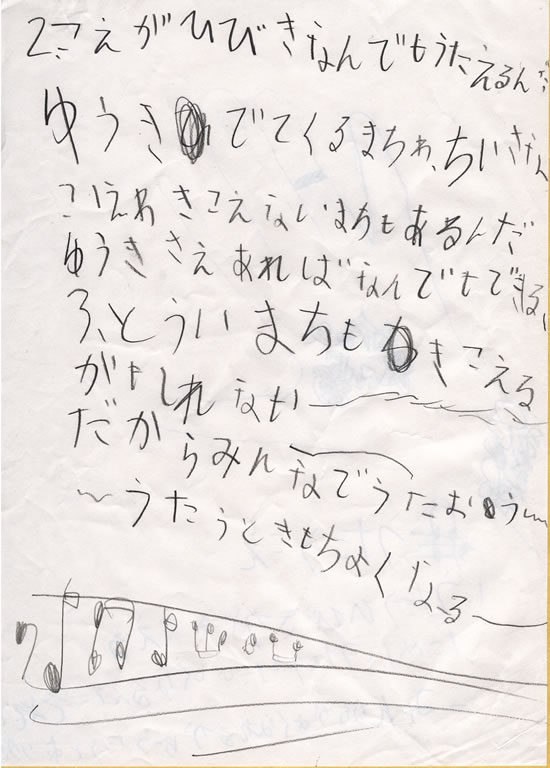 2こえがひびきなんでもうたえるんだ
ゆうきでてくるまちわ、ちいさな
こえわきこえないまちもあるんだ
ゆうきさえあればなんでもできる、
3、とういまちもきこえる
かもしれない〜
だからみんなでうたおう〜
〜うたうときもちよくなる〜